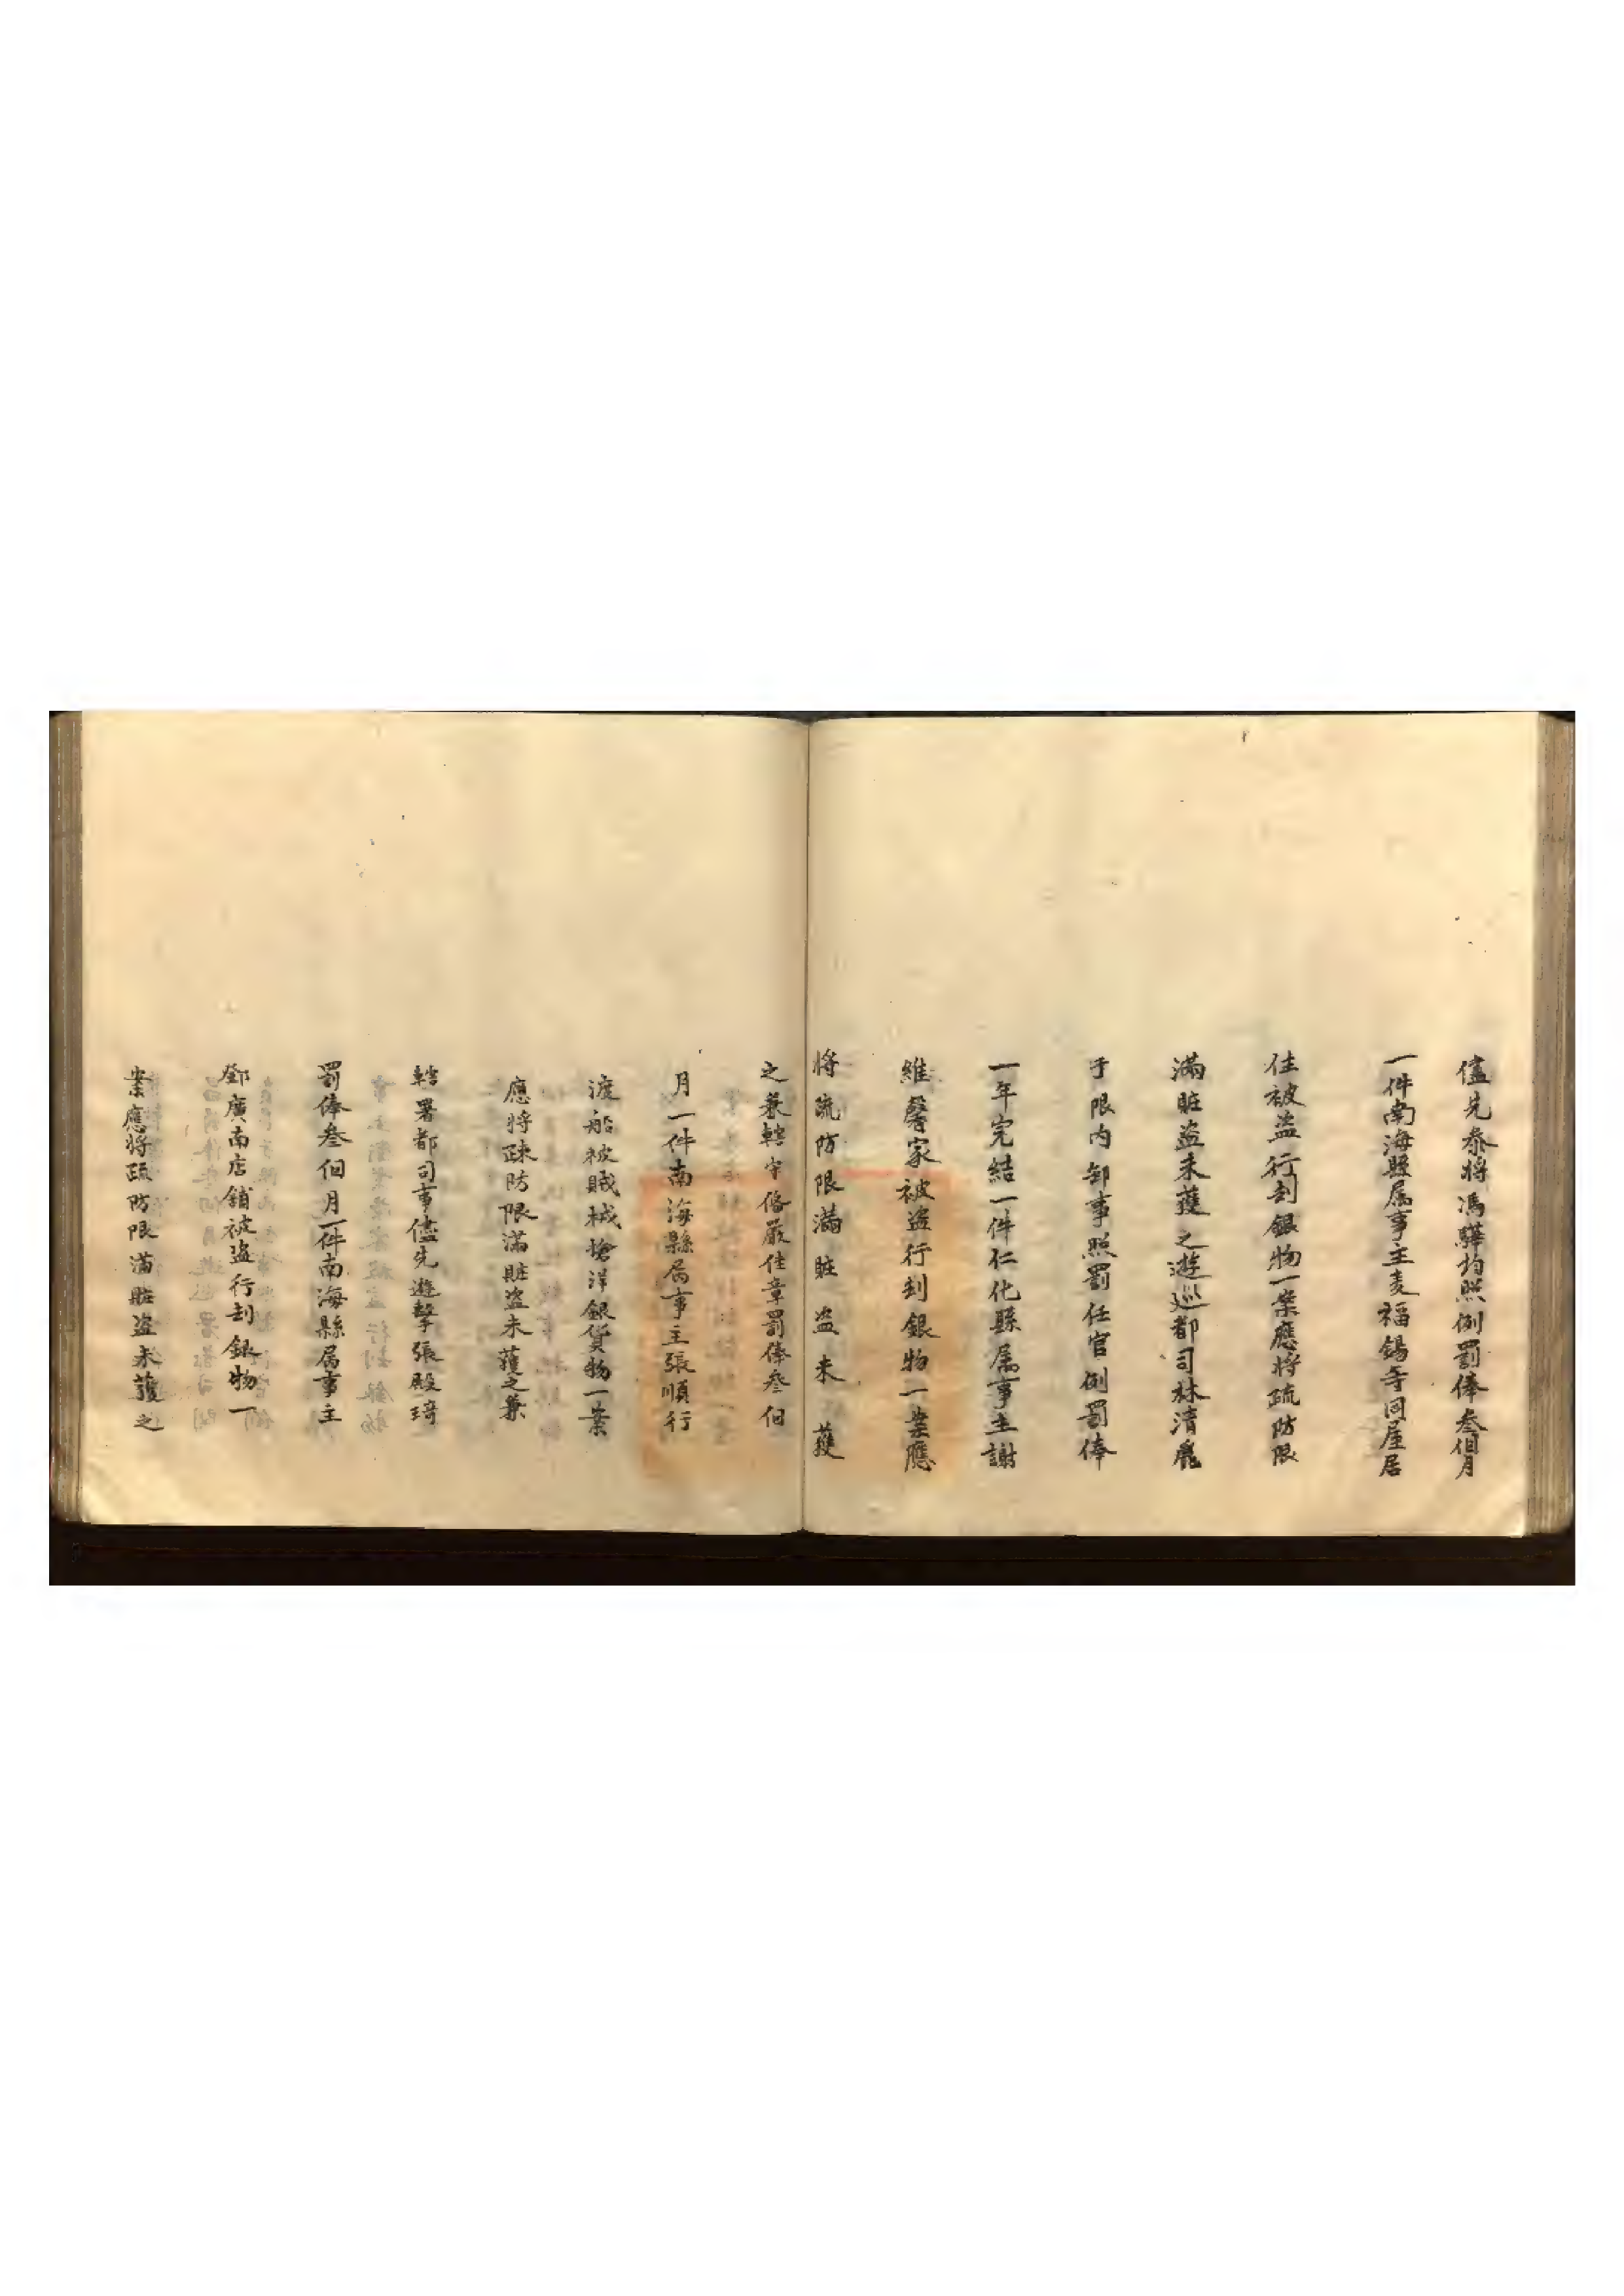 儘先叅將馮驊均照例罰俸叁佰月
一件南海縣属事主麦福錫等同屋居
住被盗行刦銀物一案應將疏防限
滿賍盗未獲之遊巡都司林清彪
于限内卸事照罰任官例罰俸
一年完結一件仁化縣属事主謝
維馨家被盗行刦銀物一案應
將疏防限滿賍盗未獲
之兼轄守俻嚴佳章罰俸叁佰
月一件南海縣属事主張順行
渡船被賊械搶洋銀貨物一案
應將疎防限滿賍盗未獲之兼
轄署都司事儘先遊擊張殿琦
罰俸叁佰月一件南海縣属事主
鄧廣南店舖被盗行刦銀物一
案應將疏防限滿賍盗未獲之